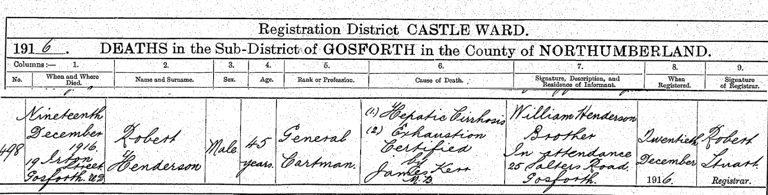 Registration District CASTLE WARD.
1916. DEATHS in the Sub-District of GOSFORTH in the County of NORTHUMBERLAND.
Columns:— 1. 2. 3. 4. 5. 6. 7. 8. 9.
No. When and Where Died. Name and Surname. Sex. Age. Rank or Profession. Cause of Death. Signature, Description, and Residence of Informant. When Registered. Signature of Registrar.
498
Nineteenth
December
1916
19
Street
Gosforth U.D.
Robert
Henderson
Male
45
years
General
Cartman
(1) Hepatic Cirrhosis
(2) Exhaustion
Certified
by
James Kerr
M.B.
William Henderson
Brother
In attendance
25 Salters Road,
Gosforth.
Twentieth
December
1916
Robert
Stuart
Registrar.